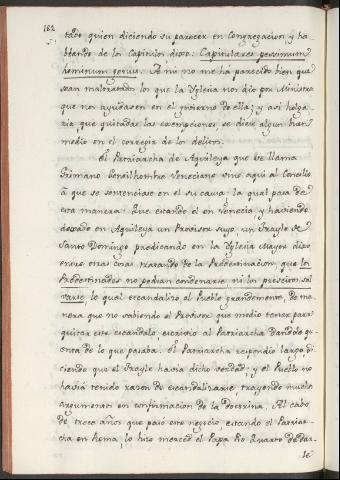 182
tado quien diciendo su parecer en Congregacion y ha
blando de los Capitulos dixo: Capitulares pessimum
hominum genus: A mi no me há parecido bien que
sean maltratados los que la Yglesia nos dio por Ministros
que nos ayudasen en el govierno de ella; y asi holga
ria, que quitadas las exempciones, se diese algun buen
medio en el corregir de los delitos.
El Patriarcha de Aquileya que se llama
Grimano Gentilhombre Veneciano vino aqui al Concilio
à que se sentenciase en su causa la qual pasa de
esta manera: Que estando el en Venecia y haviendo
dexado en Aquileya un Provisor suyo, un Frayle de
Santo Domingo predicando en la Yglesia Mayor dixo
entre otras cosas tratando de la Predestinacion, que los
Predestinados no podian condenarse, ni los prescitos sal
varse, lo qual escandalizó al Pueblo grandemente, de ma
nera que no sabiendo el Provisor que medio tener para
quitar este escandalo, escrivio al Patriarcha dandole qu
enta de lo que pasaba. El Patriarcha respondio largo, di
ciendo que el Frayle havia dicho verdad; y el Pueblo no
havia tenido razon de escandalizarse trayendo muchos
argumentos en confirmacion de la doctrina. Al cabo
de trece años que pasó este negocio, estando el Patriar
cha en Roma, le hizo merced el Papa Pio Quarto de dar
le